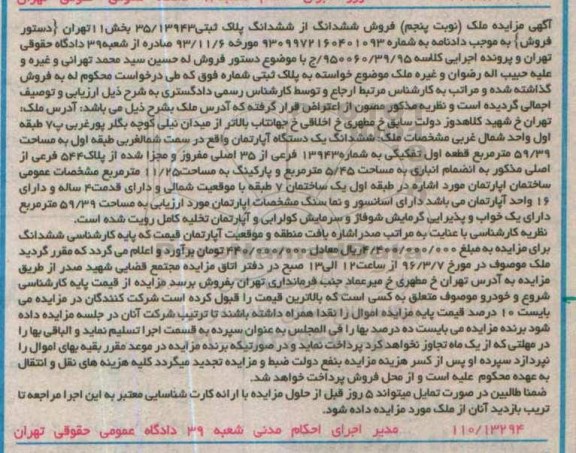 آگهی مزایده ملک (نوبت پنجم) فروش ششدانگ از ششدانگ پلاک ثبتی۳۵/۱۳۹۴۳ بخش۱۱تهران {دستور
فروش} به موجب دادنامه به شماره ۹۳۰۹۹۷۲۱۶۰۴۰۱۰۹۳ مورخه ۹۳/۱۱/۶ صادره از شعبه۳۹ دادگاه حقوقی
تهران و پرونده اجرایی کلاسه ۹۵۰۰۶۰/۳۹/۹۵/ج با موضوع دستور فروش له حسین سید محمد تهرانی و غیره و
علیه حبیب اله رضوان و غیره ملک موضوع خواسته به پلاک ثبتی شماره فوق که طی درخواست محکوم له به فروش
گذاشته شده و مراتب به کارشناس مرتبط ارجاع و توسط کارشناس رسمی دادگستری به شرح ذیل ارزیابی و توصیف
اجمالی گردیده است و نظریه مذکور مصون از اعتراض قرار گرفته که آدرس ملک بشرح ذیل می باشد: آدرس ملک:
تهران خ شهید کلاهدوز دولت سابق خ مطهری خ اخلاقی خ جهانتاب بالاتر از میدان نیلی کوچه بگلر پورغربی پ۷ طبقه
اول واحد شمال غربی مشخصات ملک: ششدانگ یک دستگاه آپارتمان واقع در سمت شمالغربی طبقه اول به مساحت
۵۹/۳۹ مترمربع قطعه اول تفکیکی به شماره۱۳۹۴۳ فرعی از ۳۵ اصلی مفروز و مجزا شده از پلاک۵۴۴ فرعی از
اصلی مذکور به انضمام انباری به مساحت ۵/۴۵ مترمربع و پارکینگ به مساحت۱۱/۲۵ مترمربع مشخصات عمومی
ساختمان اپارتمان مورد اشاره در طبقه اول یک ساختمان ۷ طبقه با موقعیت شمالی و دارای قدمت۴ ساله و دارای
۱۶ واحد آپارتمان می باشد دارای آسانسور و نما سنگ مشخصات اپارتمان مورد ارزیابی به مساحت ۵۹/۳۹ مترمربع
دارای یک خواب و پذیرایی گرمایش شوفاژ و سرمایش کولرابی و آپارتمان تخلیه کامل رویت شده است.
نظریه کارشناسی با عنایت به مراتب صدراشاره بافت منطقه و موقعیت آپارتمان قیمت که پایه کارشناسی ششدانگ
برای مزایده به مبلغ ۴/۴۰۰/۰۰۰/۰۰۰ریال معادل ۴۴۰/۰۰۰/۰۰۰ تومان برآورد و اعلام می گردد که مقرر گردید
ملک موصوف در مورخ ۹۶/۳/۷ از ساعت۱۲ الی۱۳ صبح در دفتر اتاق مزایده مجتمع قضایی شهید صدر از طریق
مزایده به آدرس تهران خ مطهری خ میرعماد جنب فرمانداری تهران بفروش برسد مزایده از قیمت پایه کارشناسی
شروع و خودرو موصوف متعلق به کسی است که بالاترین قیمت را قبول کرده است شرکت کنندگان در مزایده می
بایست ۱۰ درصد قیمت پایه مزایده اموال را نقدا همراه داشته باشند تا ترتیب شرکت آنان در جلسه مزایده داده
شود برنده مزایده می بایست ده درصد بها را فی المجلس به عنوان سپرده به قسمت اجرا تسلیم نماید و الباقی بها را
در مهلتی که از یک ماه تجاوز نخواهد کرد پرداخت نماید و در صورتیکه برنده مزایده در موعد مقرر بقیه بهای اموال را
نپردازد سپرده او پس از کسر هزینه مزایده بنفع دولت ضبط و مزایده تجدید میگردد کلیه هزینه های نقل و انتقال
به عهده محکوم علیه است و از محل فروش پرداخت خواهد شد.
ضمنا طالبین در صورت تمایل میتواند ۵ روز قبل از حلول مزایده با ارائه کارت شناسایی معتبر به این اجرا مراجعه تا
تریب بازدید آنان از ملک مورد مزایده داده شود.
۱۱۰/۱۳۲۹۴ مدیر اجرای احکام مدنی شعبه ۳۹ دادگاه عمومی حقوقی تهران